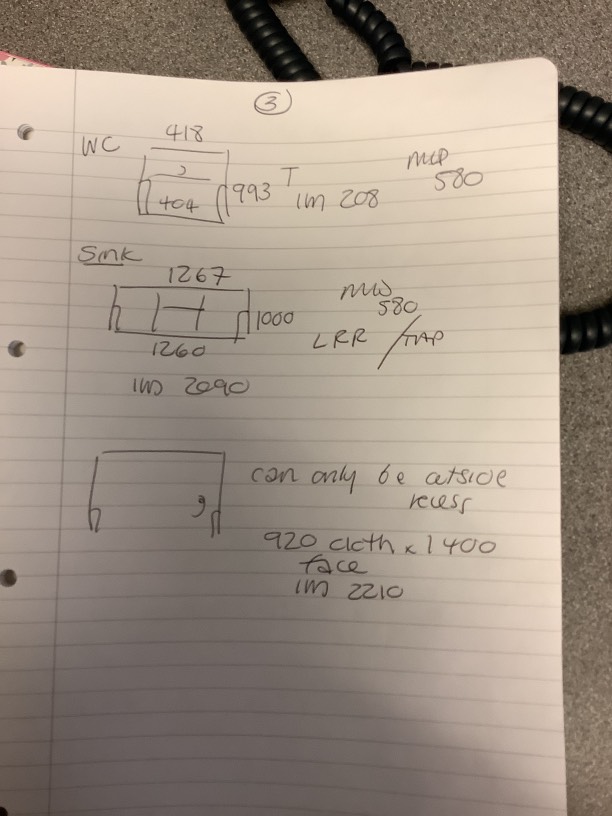 3
WC 418
404 993 T 1m 208
580
Smk
1267
1000
580
1260
LRR / TAP
1m 2090
can only be outside
recess
920 cloth x 1400
face
1m 2210